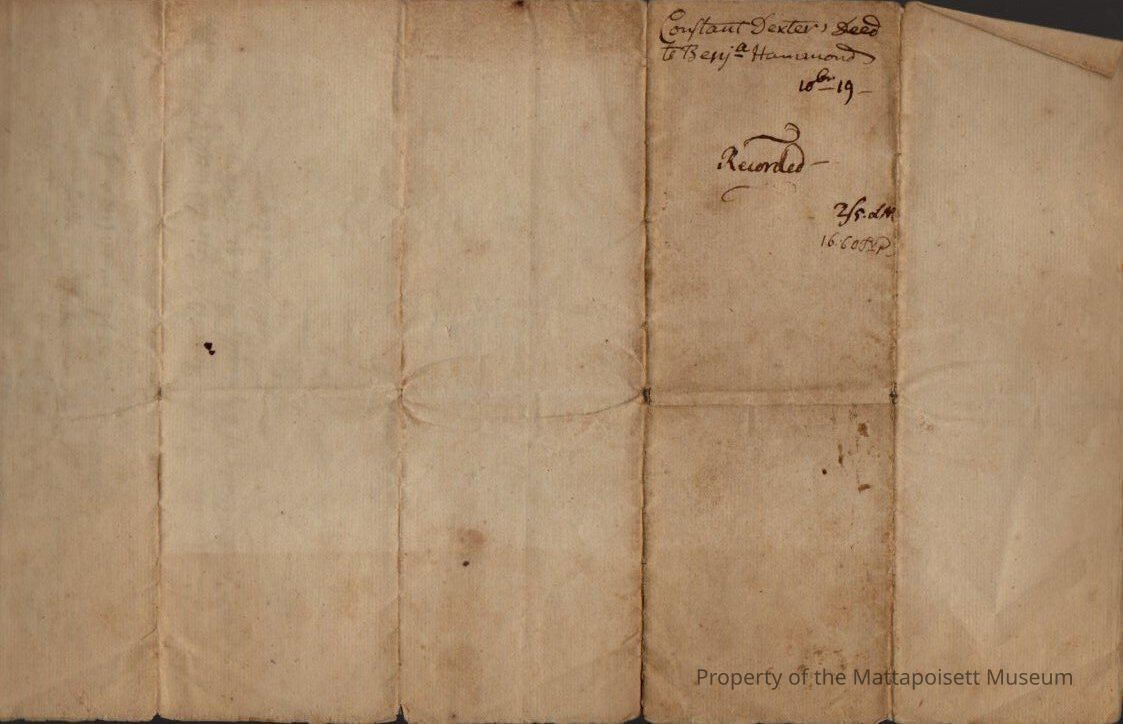 Constant Dexters Deed
to Benjᵃ Hammond
10bʳ 19
Recorded
Property of the Mattapoisett Museum